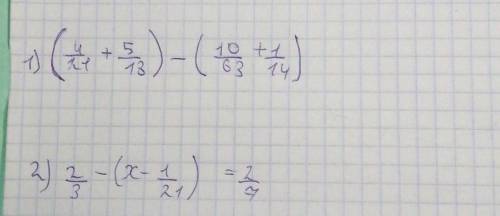 1) (4/21 + 5/13) - (10/63 + 1/14)
2) 2/3 - (x - 1/21) = 2/7